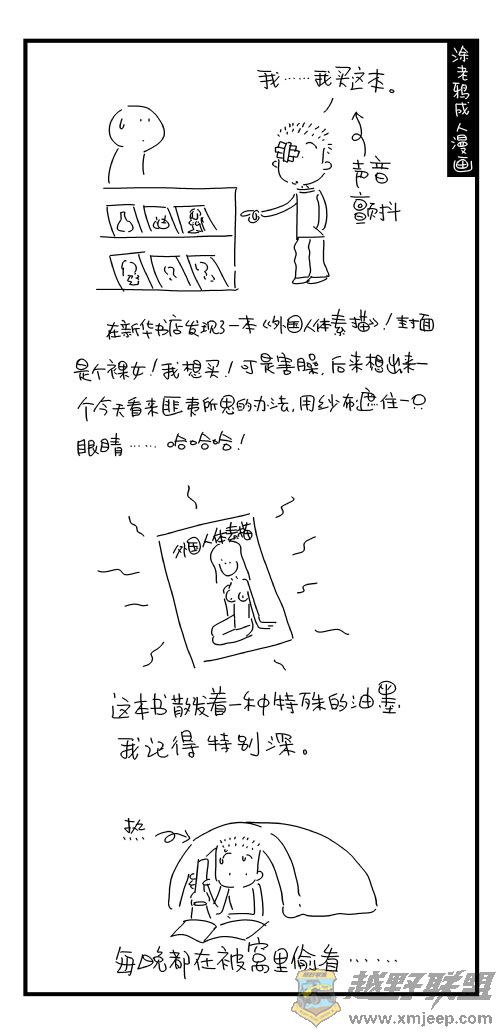 涂老鸦成人漫画
我……我买这本。
声音
颤抖
在新华书店发现了一本《外国人体素描》！封面
是个裸女！我想买！可是害臊，后来想出来一
个今天看来匪夷所思的办法，用纱布遮住一只
眼睛……哈哈哈！
外国人体素描
这本书散发着一种特殊的油墨
我记得特别深。
热
每晚都在被窝里偷看……
越野联盟
www.xmjeep.com